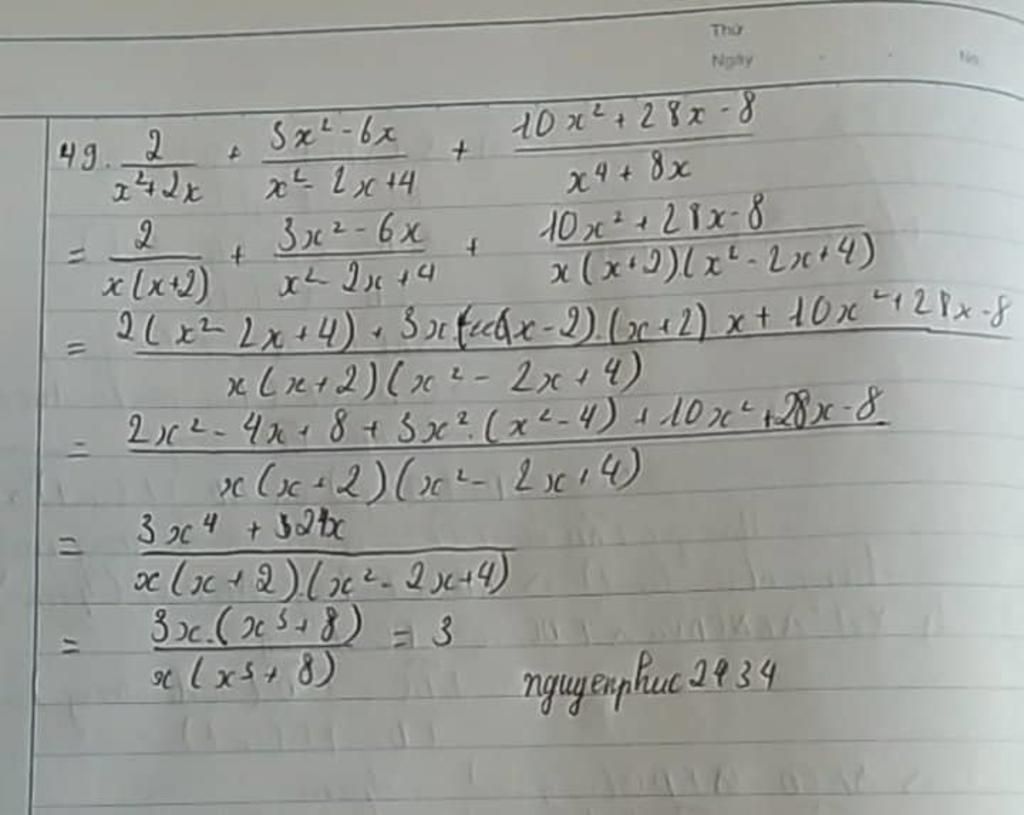 Thứ
Ngày No.
49. \frac{2}{x^2+2x} + \frac{3x^2-6x}{x^2-2x+4} + \frac{10x^2+28x-8}{x^4+8x}
= \frac{2}{x(x+2)} + \frac{3x^2-6x}{x^2-2x+4} + \frac{10x^2+28x-8}{x(x+2)(x^2-2x+4)}
= \frac{2(x^2-2x+4)+3x(x-2).(x+2)x+10x^2+28x-8}{x(x+2)(x^2-2x+4)}
= \frac{2x^2-4x+8+3x^2.(x^2-4)+10x^2+28x-8}{x(x+2)(x^2-2x+4)}
= \frac{3x^4+24x}{x(x+2).(x^2-2x+4)}
= \frac{3x.(x^3+8)}{x(x^3+8)} = 3
nguyenphuc2434